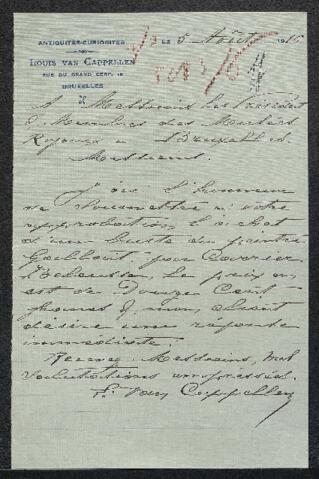 ANTIQUITÉS-CURIOSITÉS
LOUIS VAN CAPPELLEN
RUE DU GRAND CERF, 16
BRUXELLES
LE 5 Août 191
A Messieurs les Président
& Membres des Musées
Royaux à Bruxelles.
Messieurs.
J'ai l'honneur
de soumettre à votre
approbation l'achat
d'un buste du peintre
Gallait par Cuvrier
Le prix en
est de Douze Cent
francs & mon client
désire une réponse
immédiate.
Recevez Messieurs, mes
salutations empressées.
L. Van Cappellen